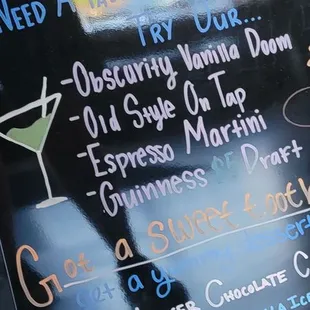 Need A
Try Our...
-Obscurity Vanilla Doom
-Old Style On Tap
-Espresso Martini
-Guinness Draft
Got a sweet tooth
Get a yummy
Chocolate C